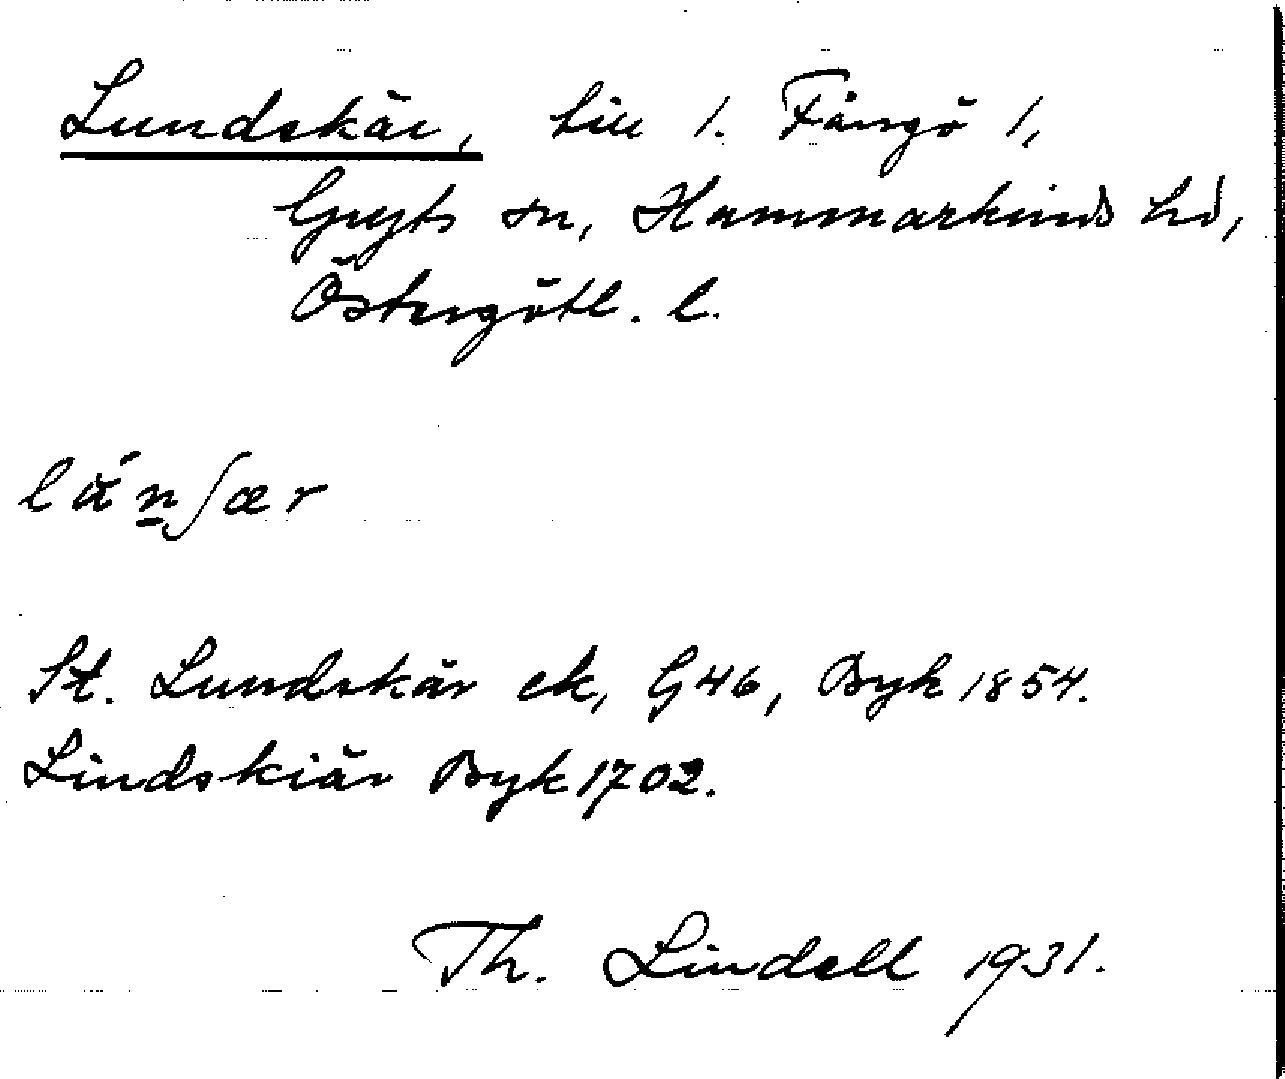 Lundskär, till 1. Fångö 1,
Gryts sn, Hammarkinds hd,
Östergötl. l.
län̲ʃær
St. Lundskär ek, G46, Byk 1854.
Lindskiär Byk 1702.
Th. Lindell 1931.